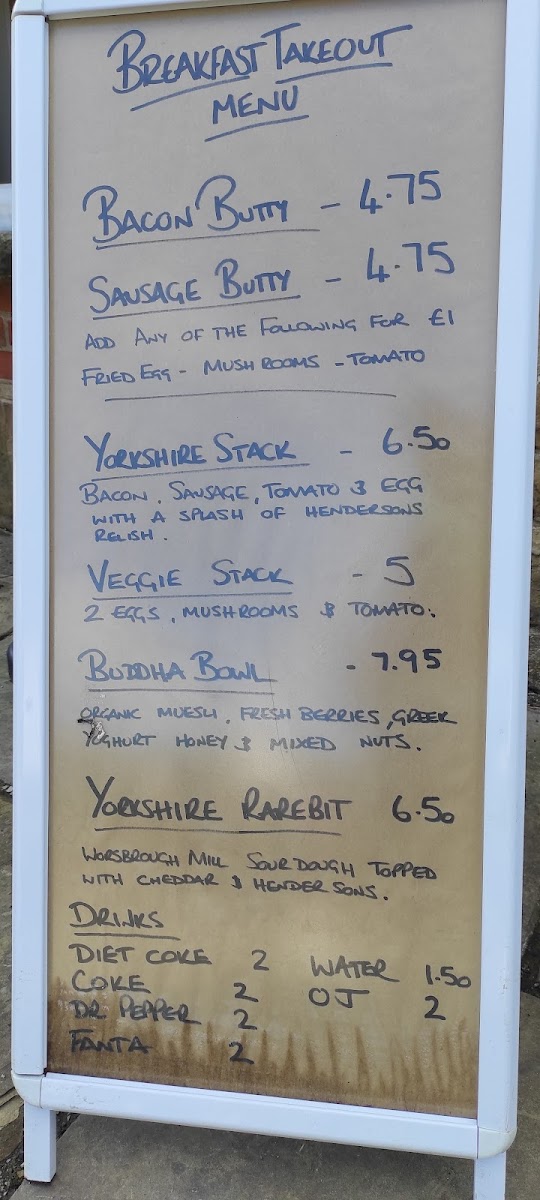 BREAKFAST TAKEOUT
MENU
BACON BUTTY - 4.75
SAUSAGE BUTTY - 4.75
ADD ANY OF THE FOLLOWING FOR £1
FRIED EGG - MUSHROOMS - TOMATO
YORKSHIRE STACK - 6.50
BACON, SAUSAGE, TOMATO & EGG
WITH A SPLASH OF HENDERSONS
RELISH.
VEGGIE STACK - 5
2 EGGS, MUSHROOMS & TOMATO.
BUDDHA BOWL - 7.95
ORGANIC MUESLI, FRESH BERRIES, GREEK
YOGHURT HONEY & MIXED NUTS.
YORKSHIRE RAREBIT 6.50
WORSBROUGH MILL SOURDOUGH TOPPED
WITH CHEDDAR & HENDERSONS.
DRINKS
DIET COKE 2 WATER 1.50
COKE 2 OJ 2
DR PEPPER 2
FANTA 2